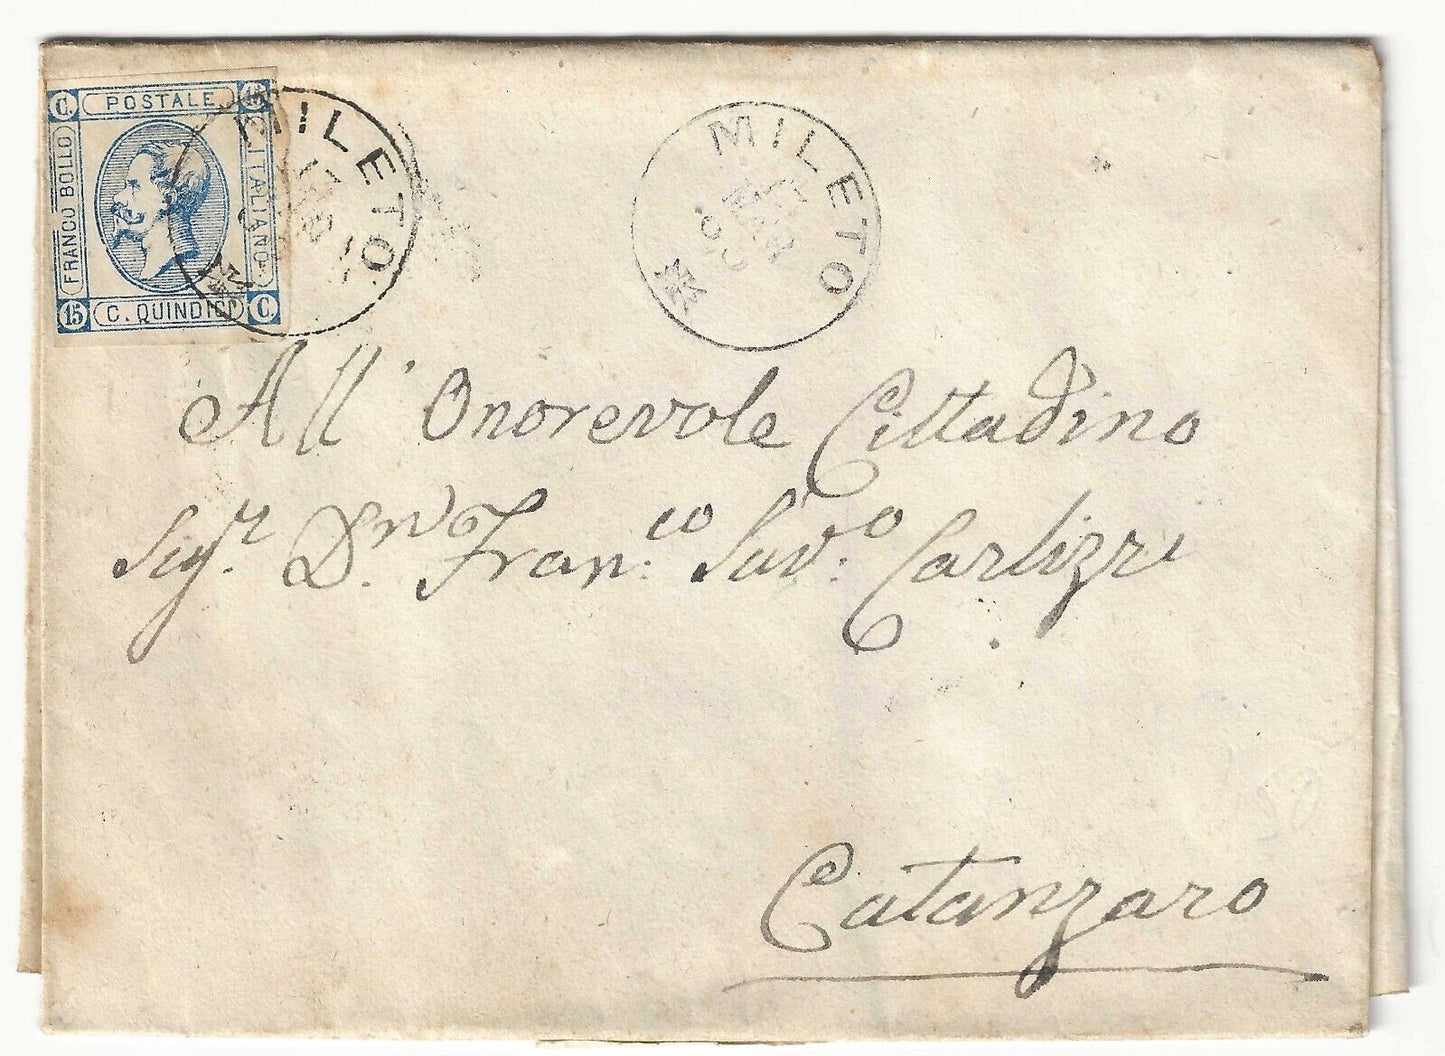 C. POSTALE C.
FRANCO BOLLO
ITALIANO
15 C. QUINDICI C.
MILETO
MILETO
All' Onorevole Cittadino
Sig.r D.n Fran.co Sav.o Carlizzi
Catanzaro